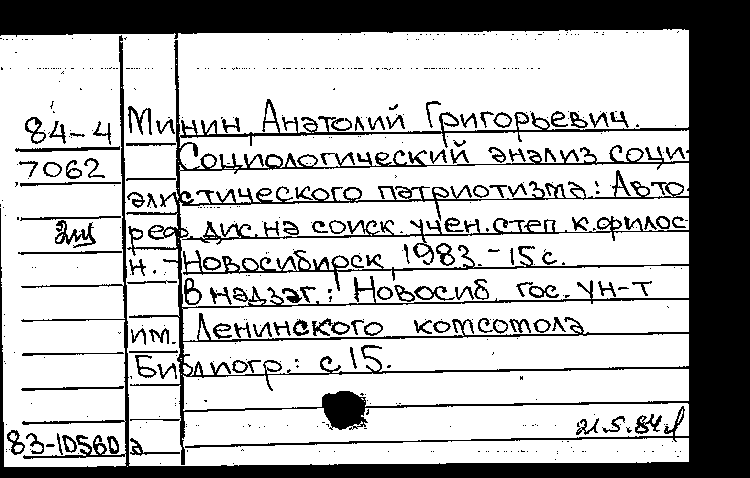 84-4 Минин, Анатолий Григорьевич.
7062 Социологический анализ соци-
алистического патриотизма: Авто-
реф. дис. на соиск. учен. степ. к. филос.
н. - Новосибирск, 1983. - 15 с.
В надзаг.: Новосиб. гос. ун-т
им. Ленинского комсомола
Библиогр.: с. 15.
21.5.84
83-10560 а